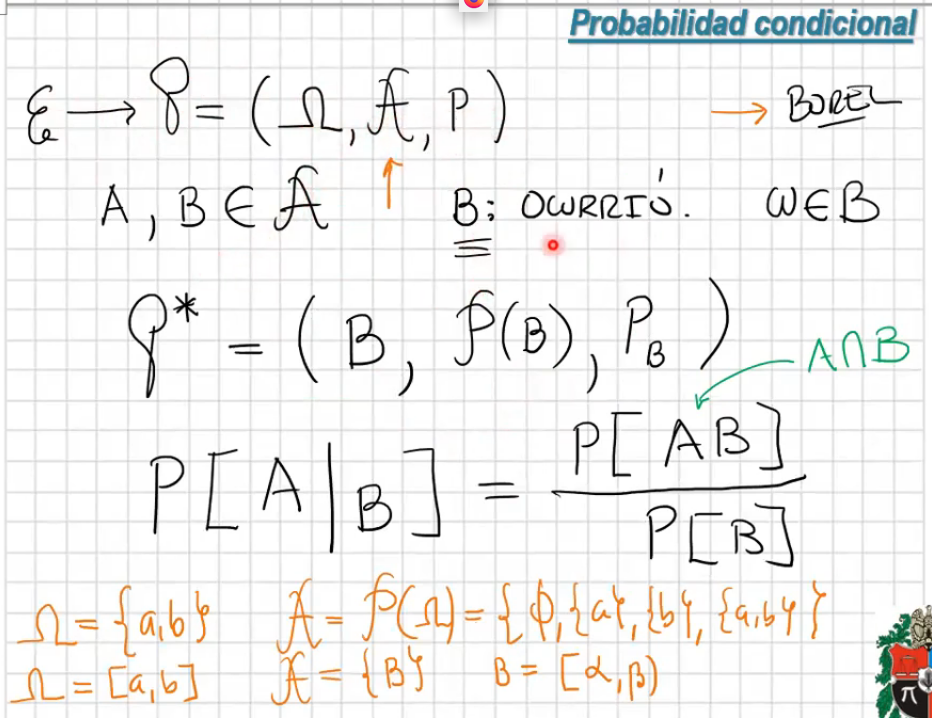 Probabilidad condicional
ℰ → 𝒫 = (Ω, 𝒜, P) → BOREL
A, B ∈ 𝒜 ↑ B: OCURRIÓ. ω ∈ B
𝒫* = (B, 𝒫(B), P_B)
A∩B
P[A|B] = P[AB] / P[B]
Ω = {a,b} 𝒜 = 𝒫(Ω) = {ϕ, {a}, {b}, {a,b}}
Ω = [a,b] 𝒜 = {B} B = [α,β)
π